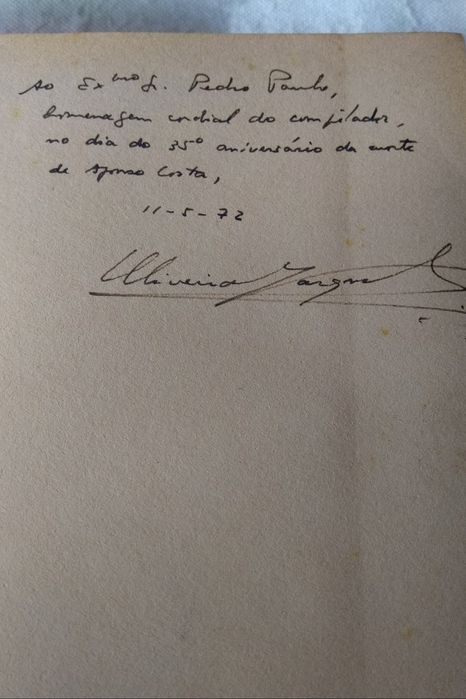 Ao Exmo Sr. Pedro Paulo,
homenagem cordial do compilador,
no dia do 35º aniversário da morte
de Afonso Costa,
11-5-72
Oliveira Marques